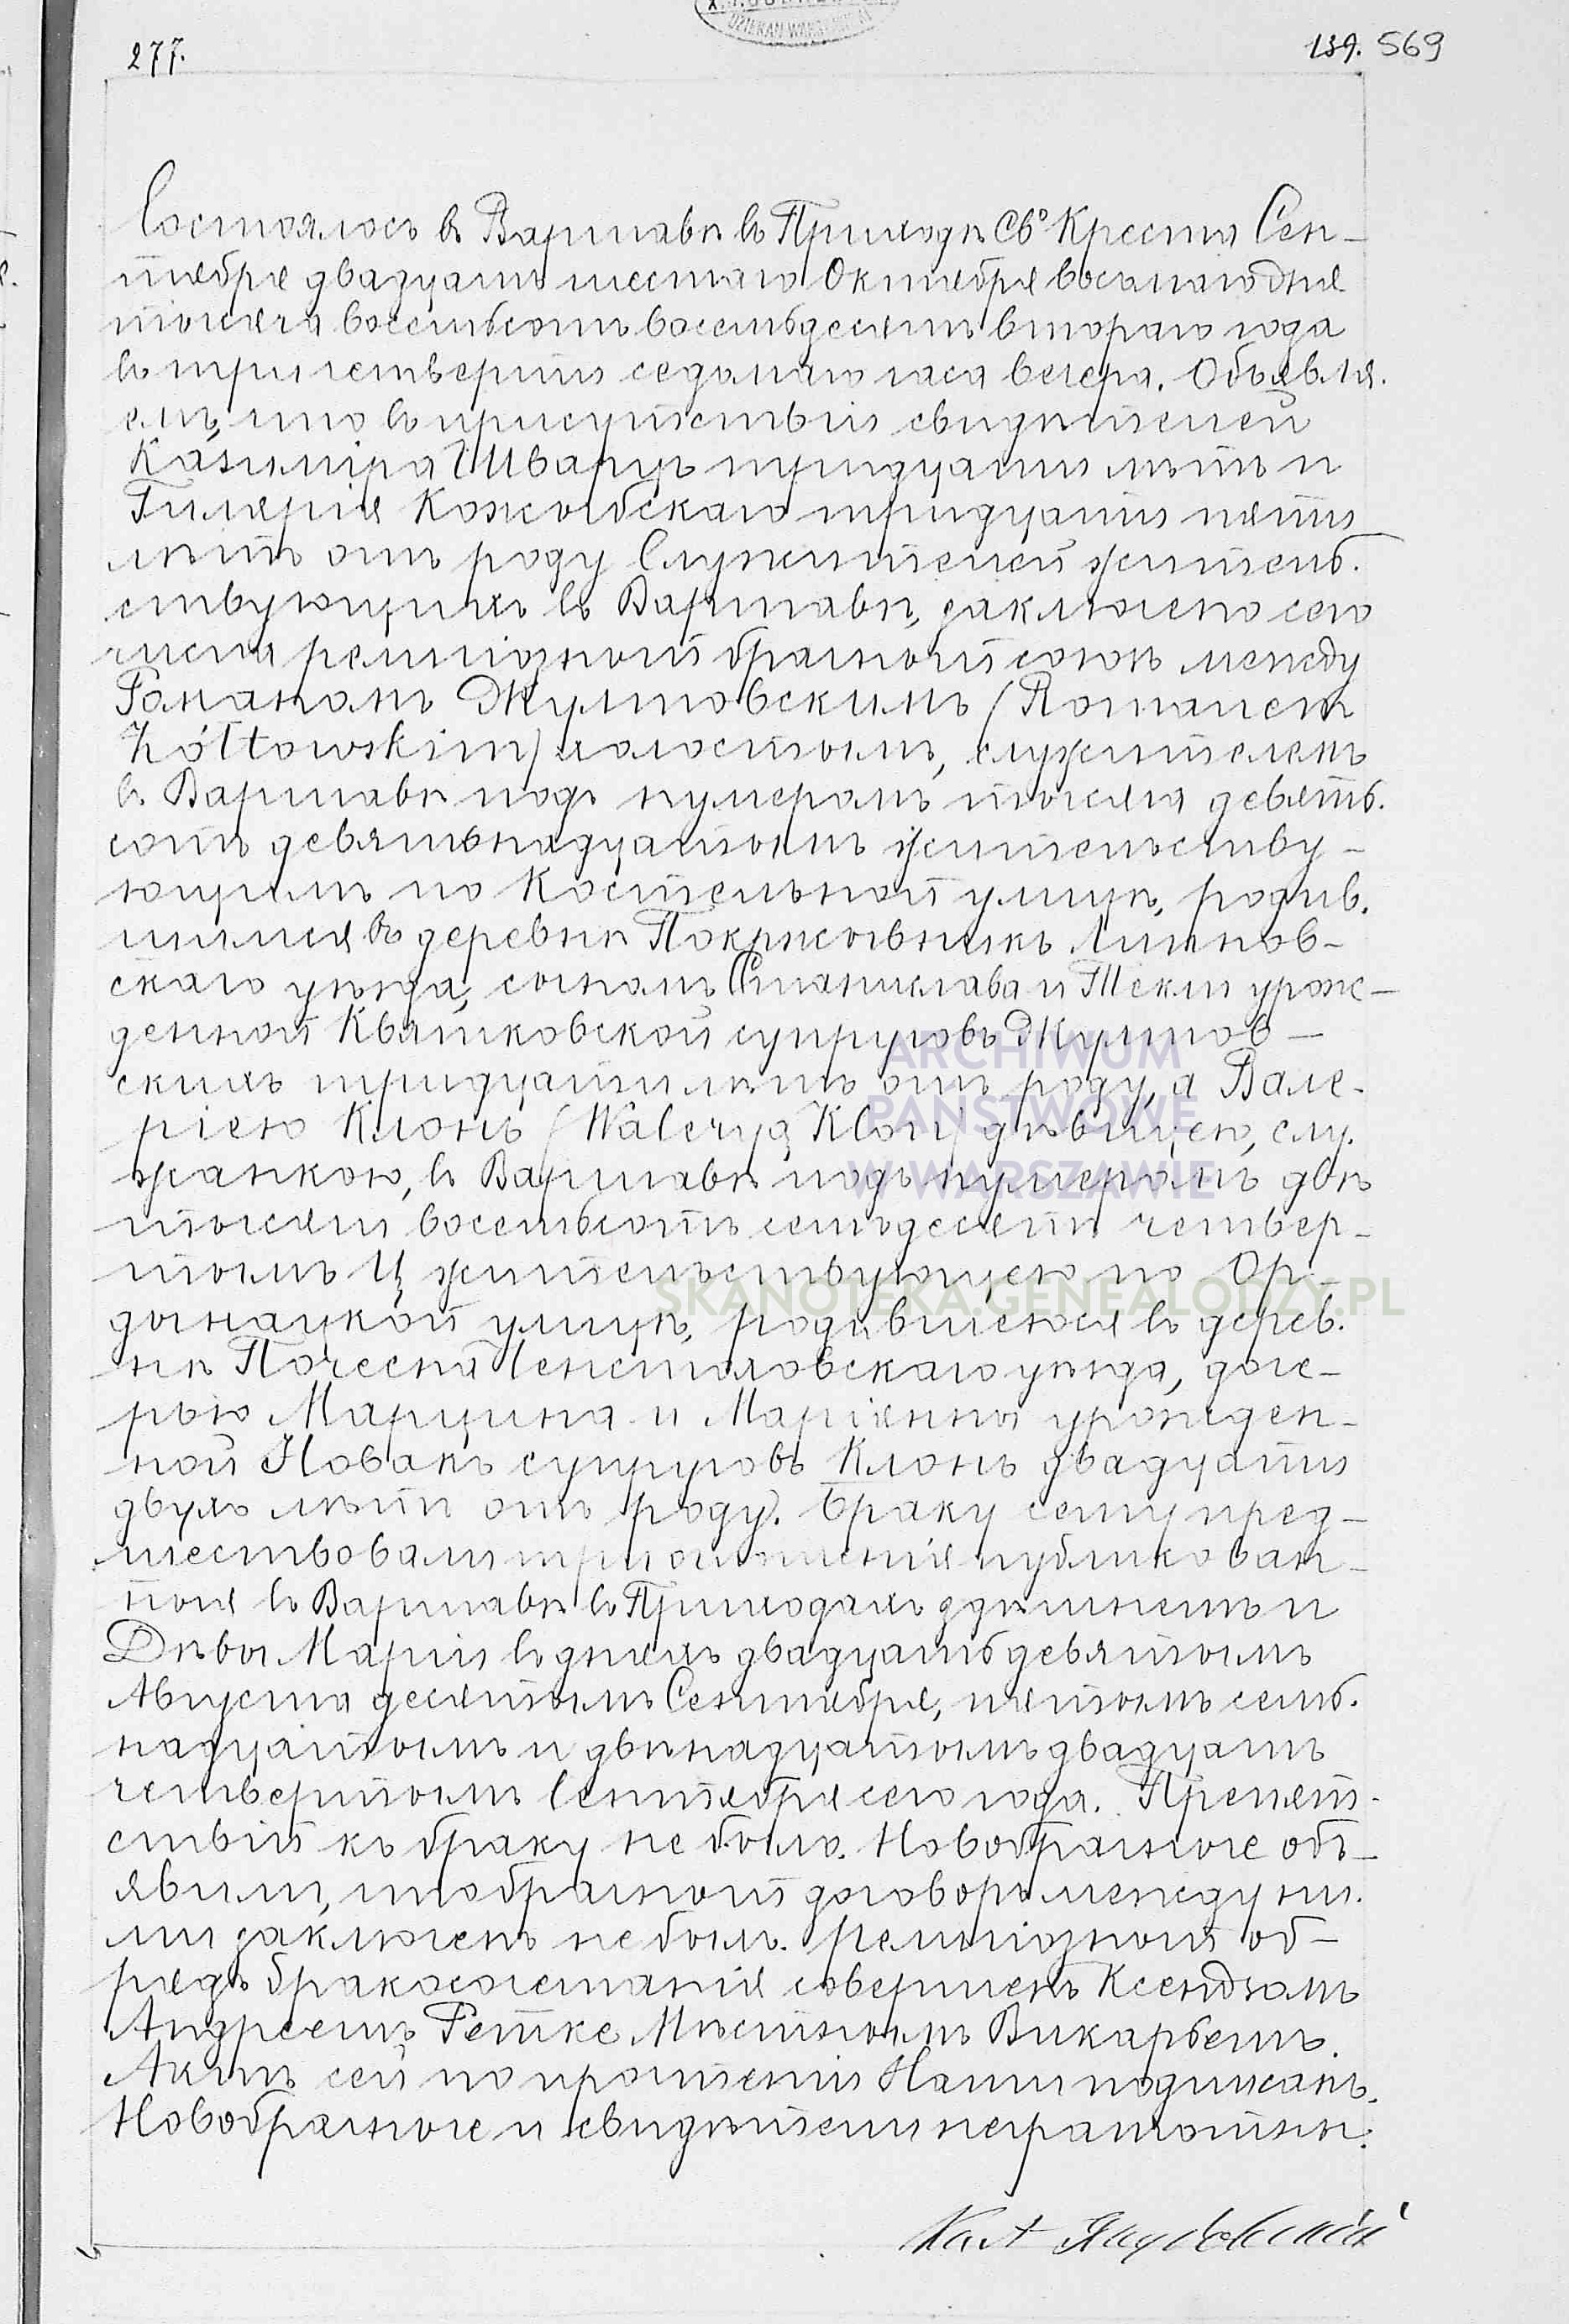 277.
139. 569
Состоялось въ Варшавѣ въ Приходѣ Св. Креста Сен-
тября двадцать шестаго Октября восьмаго дня
тысяча восемьсотъ восемьдесятъ втораго года
въ три четверти седьмаго часа вечера. Объявля.
емъ, что въ присутствіи свидѣтелей
Казиміра Шварцъ тридцати лѣтъ и
Гилярія тридцати пяти
лѣтъ отъ роду Служителей жительс.
ствующихъ въ Варшавѣ, заключено сего
числа религіозный брачный союзъ между
Романомъ Жултовскимъ (Romanem
Żółtowskim) холостымъ, служителемъ
въ Варшавѣ подъ нумеромъ тысяча девять.
сотъ девятьнадцатымъ жительству-
ющимъ по Костельной улицѣ, родив.
шимся въ деревнѣ Липнов-
скаго уѣзда, сыномъ Станислава и Текли урож-
денной Квятковской супруговъ Жултов-
скихъ тридцати лѣтъ отъ роду, а Вале-
ріею Клонъ (Waleryą Klon) дѣвицею, слу.
жанкою, въ Варшавѣ подъ нумеромъ двѣ
тысячи восемьсотъ семьдесятъ четвер-
тымъ Ц жительствующею по Ор-
дынацкой улицѣ, родившеюся въ дерев.
нѣ Почесна Ченстоховскаго уѣзда, доче-
рью Марцина и Маріянны урожден-
ной Новакъ супруговъ Клонъ двадцати
двухъ лѣтъ отъ роду. Браку сему пред-
шествовали три оглашенія публикован-
ныя въ Варшавѣ въ Приходахъ здѣшнемъ и
Дѣвы Маріи въ дняхъ двадцать девятымъ
Августа десятымъ Сентября, пятымъ семь.
надцатымъ и двѣнадцатымъ двадцать
четвертымъ Сентября сего года. Препят-
ствій къ браку не было. Новобрачные объ-
явили, что брачный договоръ между ни.
ми заключенъ не былъ. Религіозный об-
рядъ бракосочетанія совершенъ Ксендзомъ
Андреемъ Ретке Мѣстнымъ Викарьемъ.
Актъ сей по прочтеніи Нами подписанъ.
Новобрачные и свидѣтели неграмотны.
ARCHIWUM
PAŃSTWOWE
W WARSZAWIE
SKANOTEKA.GENEALODZY.PL